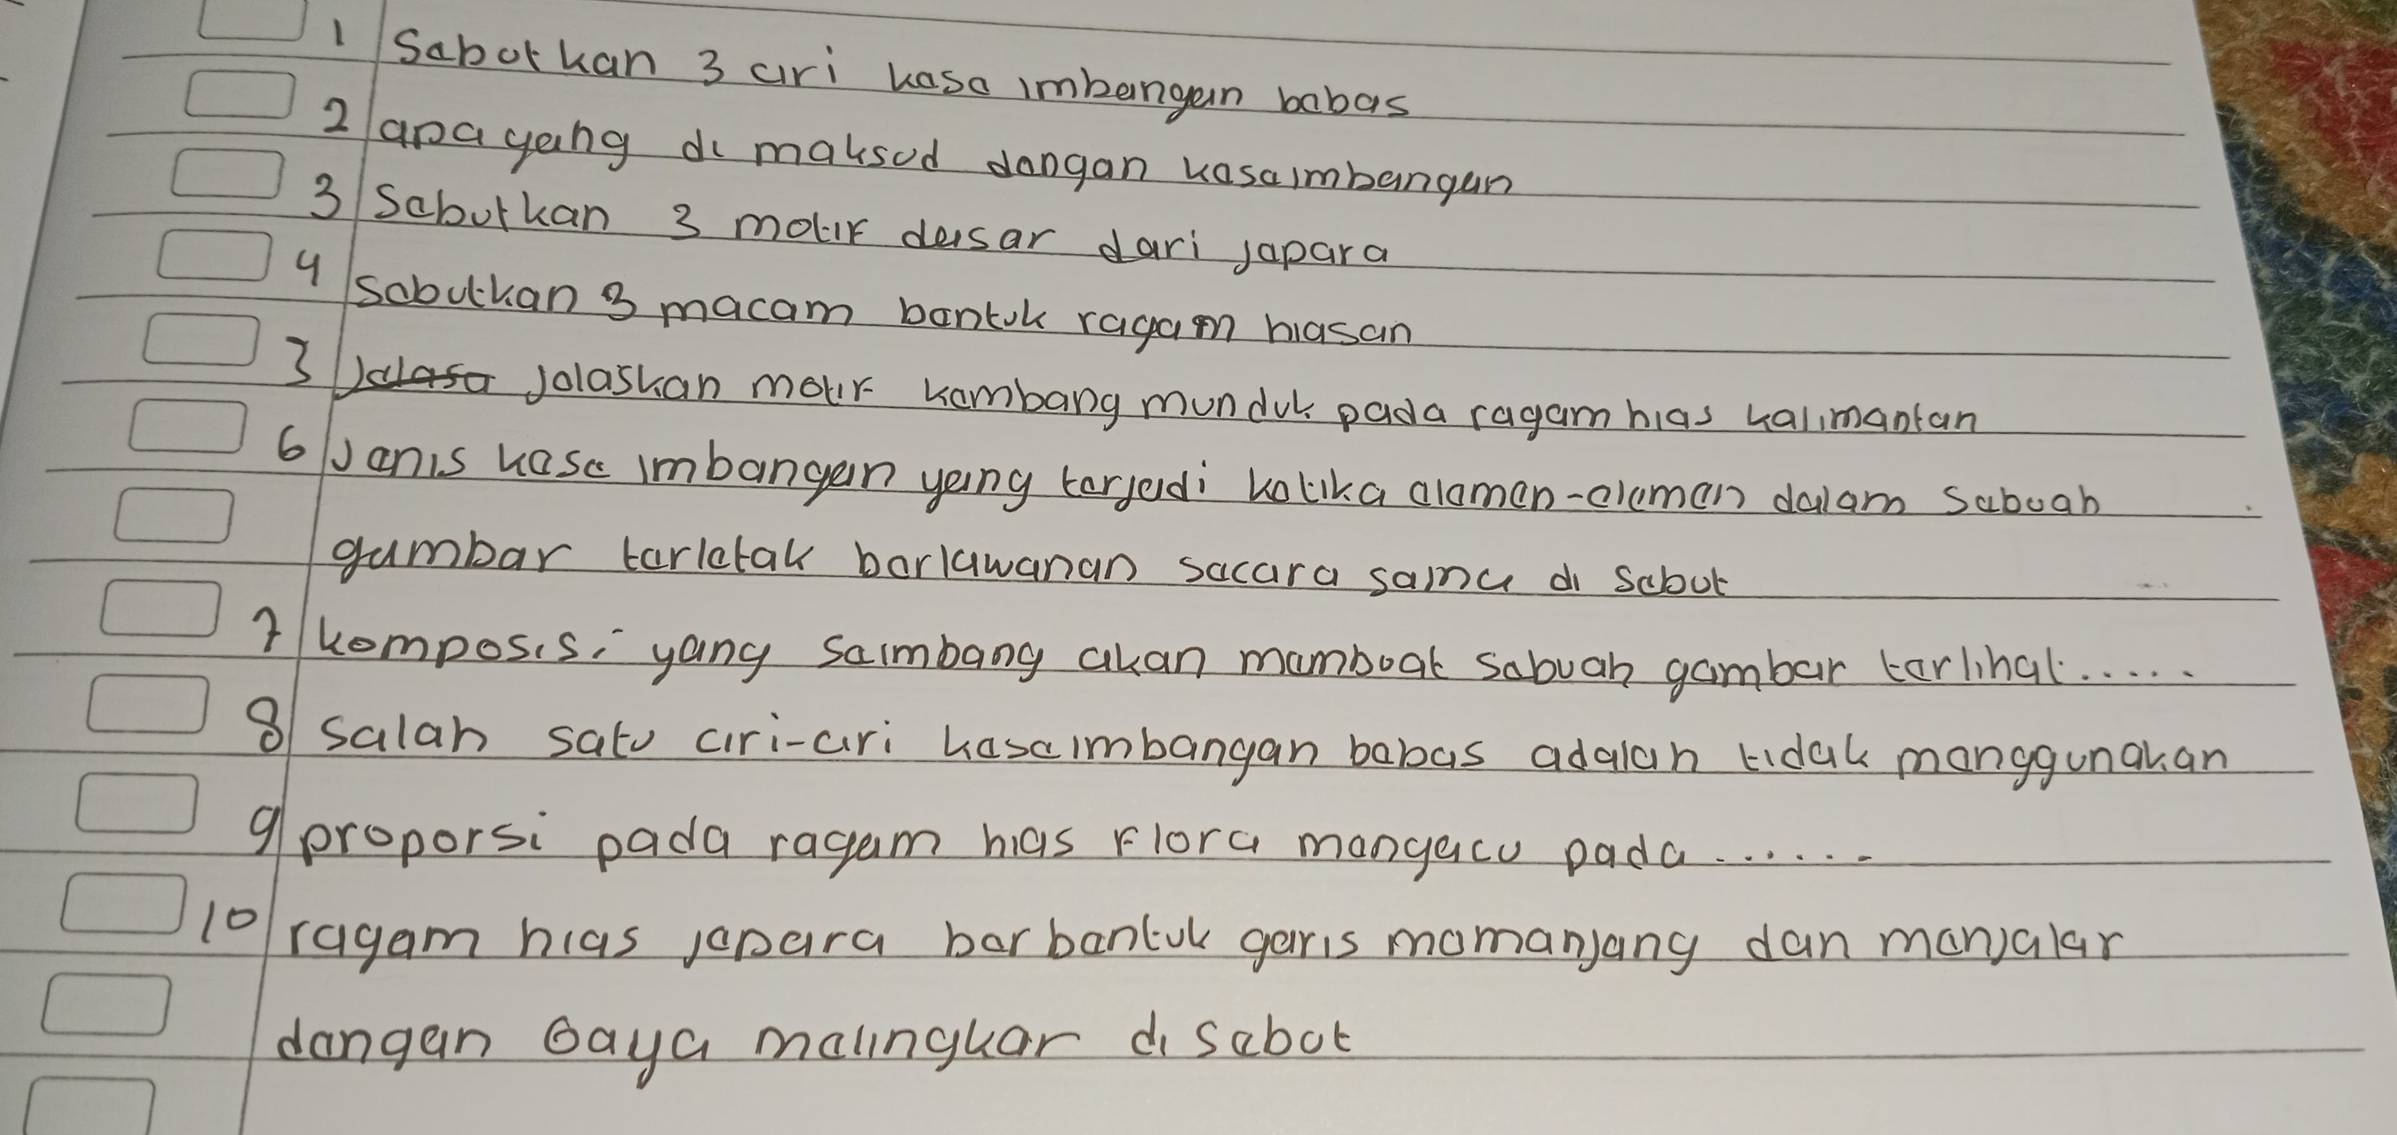 1 Sebutkan 3 ciri kese imbangan bebas
2 apa yang di maksud dengan keseimbangan
3 Sebutkan 3 motif dasar dari jepara
4 sebutkan 3 macam bentuk ragam hiasan
3 Jelasa jelaskan motif kembang munduk pada ragam hias kalimantan
6 Jenis kese imbangan yang terjadi ketika elemen-elemen dalam sebuah
gambar terletak berlawanan secara sama di sebut
7 komposisi yang seimbang akan membuat sebuah gambar terlihat.....
8 salah satu ciri-ciri keseimbangan bebas adalah tidak menggunakan
9 proporsi pada ragam hias flora mengacu pada......
10 ragam hias jepara berbentuk garis memanjang dan menjalar
dengan gaya melingkar di sebut